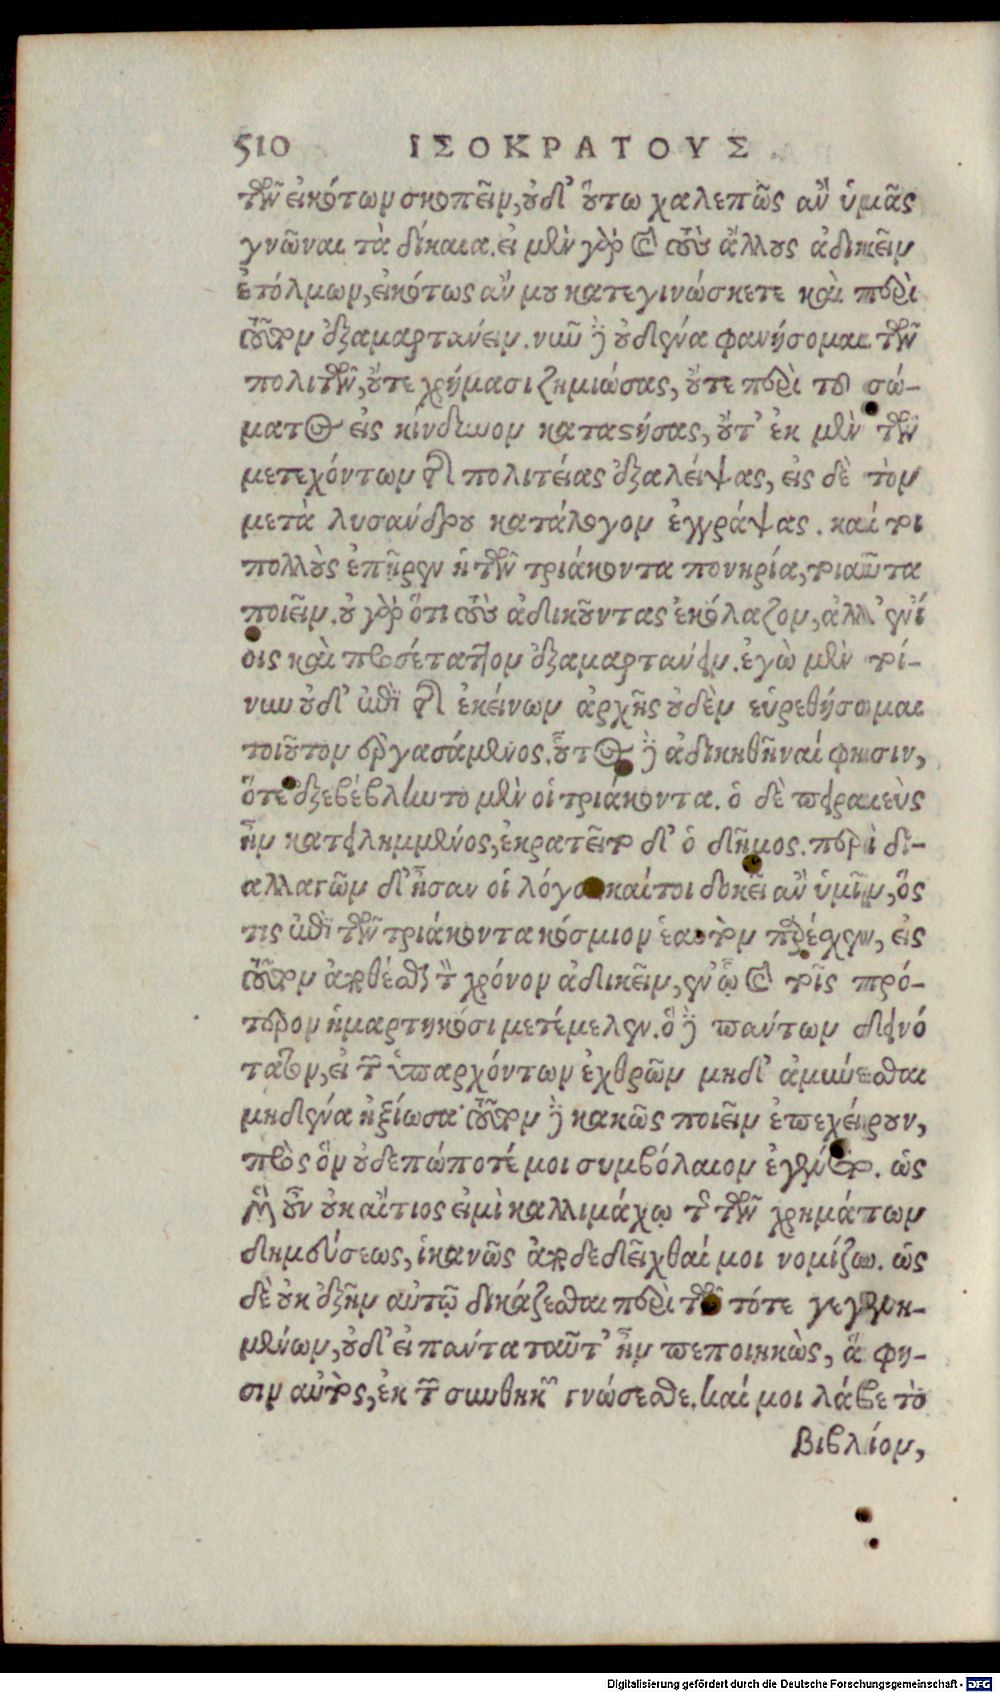 510 ΙΣΟΚΡΑΤΟΥΣ
τῶν εἰκότων σκοπεῖν, οὐδ' οὕτω χαλεπῶς ἂν ὑμᾶς
γνῶναι τὰ δίκαια. εἰ μὲν γὰρ καὶ τοὺς ἄλλους ἀδικεῖν
ἐτόλμων, εἰκότως ἄν μου κατεγινώσκετε καὶ περὶ
τοῦτον ἐξαμαρτάνειν. νῦν δὲ οὐδένα φανήσομαι τῶν
πολιτῶν, οὔτε χρήμασι ζημιώσας, οὔτε περὶ τοῦ σώ-
ματος εἰς κίνδυνον καταστήσας, οὔτ' ἐκ μὲν τῶν
μετεχόντων τῆς πολιτείας ἐξαλείψας, εἰς δὲ τὸν
μετὰ λυσάνδρου κατάλογον ἐγγράψας. καίτοι
πολλοὺς ἐπῆρεν ἡ τῶν τριάκοντα πονηρία, τοιαῦτα
ποιεῖν. οὐ γὰρ ὅτι τοὺς ἀδικοῦντας ἐκόλαζον, ἀλλ' ἐνί
οις καὶ προσέταττον ἐξαμαρτάνειν. ἐγὼ μὲν τοί-
νυν οὐδ' ἐπὶ τῆς ἐκείνων ἀρχῆς οὐδὲν εὑρεθήσομαι
τοιοῦτον ἐργασάμενος. οὗτος δὲ ἀδικηθῆναί φησιν,
ὅτε ἐξεβέβληντο μὲν οἱ τριάκοντα. ὁ δὲ πειραιεὺς
ἦν κατειλημμένος, ἐκρατεῖτο δ' ὁ δῆμος. περὶ δι-
αλλαγῶν δ' ἦσαν οἱ λόγοι. καίτοι δοκεῖ ἂν ὑμῖν, ὅς
τις ἐπὶ τῶν τριάκοντα κόσμιον ἑαυτὸν παρέσχεν, εἰς
τοῦτον ἀποθέσθαι τὸν χρόνον ἀδικεῖν, ἐν ᾧ καὶ τοῖς πρό-
τερον ἡμαρτηκόσι μετέμελεν. ὃ δὲ πάντων δεινό
τατον, εἰ τῶν ὑπαρχόντων ἐχθρῶν μηδ' ἀμύνεσθαι
μηδένα ἠξίωσα· τοῦτον δὲ κακῶς ποιεῖν ἐπεχείρουν,
πρὸς ὃν οὐδεπώποτέ μοι συμβόλαιον ἐγένετο. ὡς
μὲν οὖν οὐκ αἴτιος εἰμὶ καλλιμάχῳ τῆς τῶν χρημάτων
δημεύσεως, ἱκανῶς ἀποδεδεῖχθαί μοι νομίζω. ὡς
δὲ οὐκ ἐξῆν αὐτῷ δικάζεσθαι περὶ τῶν τότε γεγενη-
μένων, οὐδ' εἰ πάντα ταῦτ' ἦν πεποιηκὼς, ἅ φη-
σιν αὐτὸς, ἐκ τῶν συνθηκῶν γνώσεσθε. καί μοι λάβε τὸ
βιβλίον,
Digitalisierung gefördert durch die Deutsche Forschungsgemeinschaft - DFG